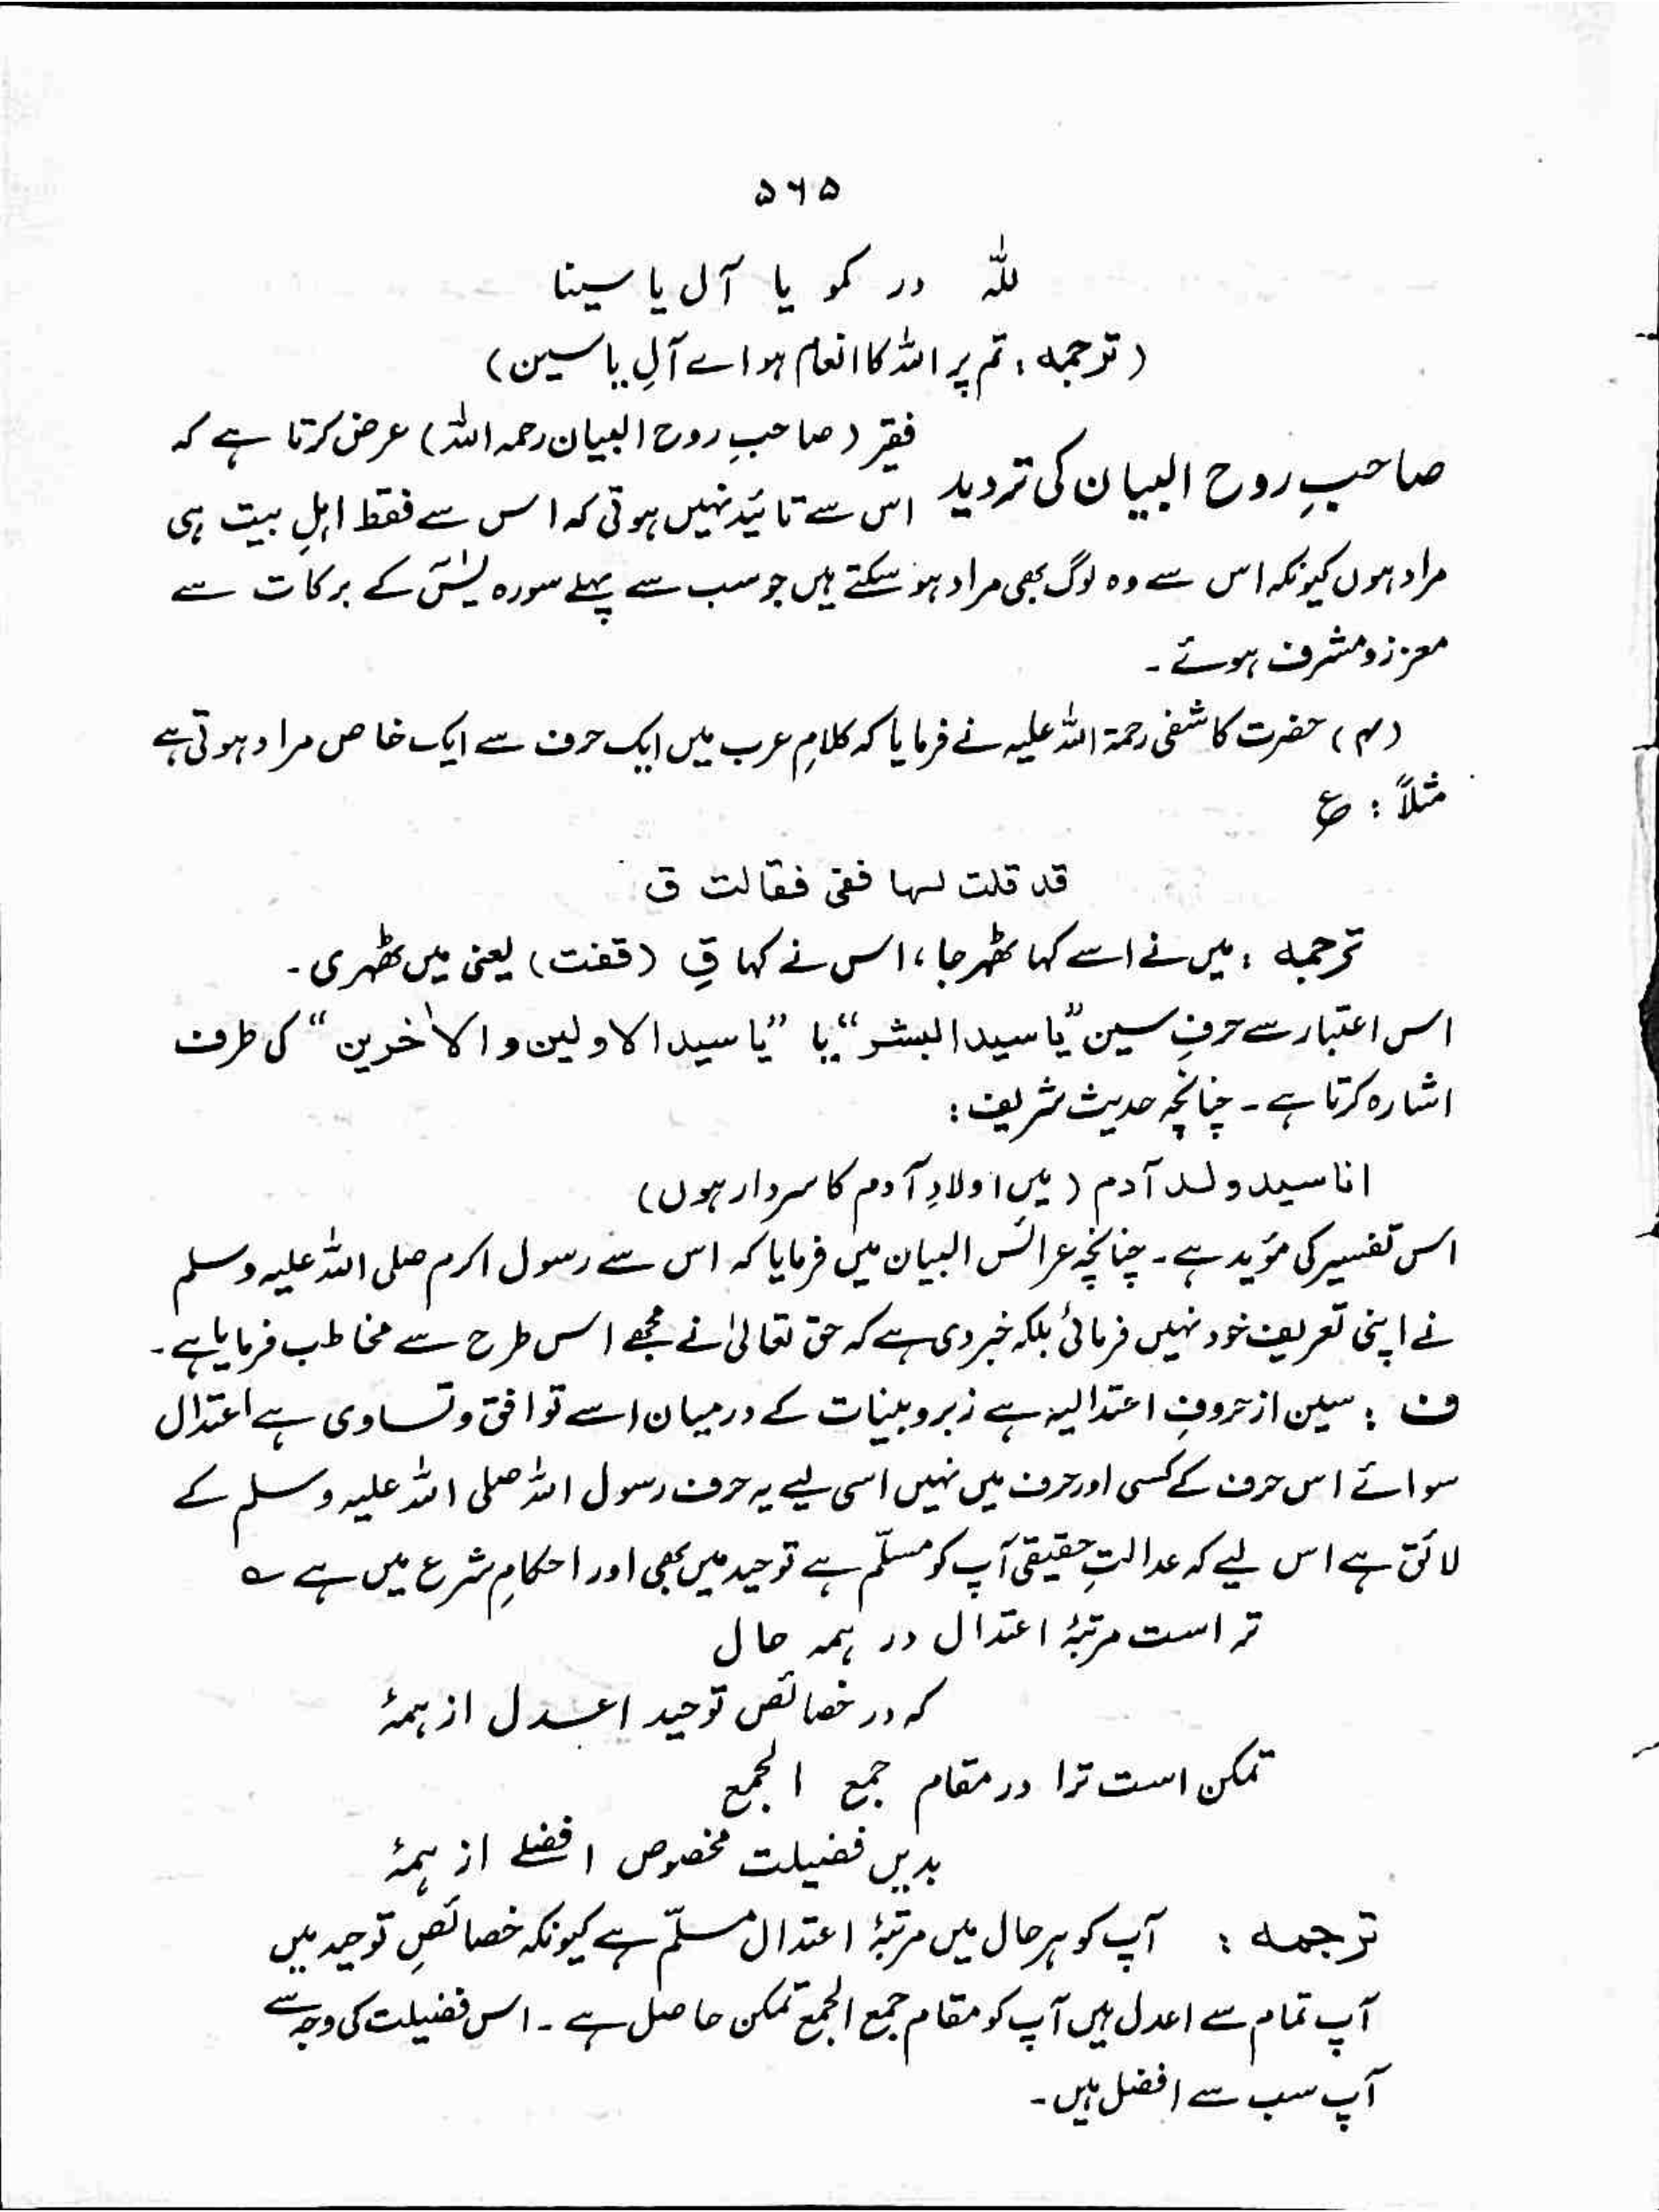 ۵۶۵
للّٰہ در کمو یا آل یاسینا
(ترجمہ: تم پر اللہ کا انعام ہو اے آلِ یاسین)
صاحبِ روح البیان کی تردید
فقیر (صاحبِ روح البیان رحمہ اللہ) عرض کرتا ہے کہ
اس سے تائید نہیں ہوتی کہ اس سے فقط اہلِ بیت ہی
مراد ہوں کیونکہ اس سے وہ لوگ بھی مراد ہو سکتے ہیں جو سب سے پہلے سورہ یٰسٓ کے برکات سے
معزز و مشرف ہوئے۔
(۴) حضرت کاشفی رحمۃ اللہ علیہ نے فرمایا کہ کلامِ عرب میں ایک حرف سے ایک خاص مراد ہوتی ہے
مثلاً : ع
قد قلت لہا قفی فقالت ق
ترجمہ : میں نے اسے کہا ٹھہر جا، اس نے کہا قِ (قفت) یعنی میں ٹھہری۔
اس اعتبار سے حرفِ سین "یا سید البشر" یا "یا سید الاولین و الاٰخرین" کی طرف
اشارہ کرتا ہے۔ چنانچہ حدیث شریف :
انا سید ولد آدم (میں اولادِ آدم کا سردار ہوں)
اس تفسیر کی مؤید ہے۔ چنانچہ عرائس البیان میں فرمایا کہ اس سے رسول اکرم صلی اللہ علیہ وسلم
نے اپنی تعریف خود نہیں فرمائی بلکہ خبر دی ہے کہ حق تعالیٰ نے مجھے اس طرح سے مخاطب فرمایا ہے۔
ف : سین از حروفِ اعتدالیہ ہے زبر و بینات کے درمیان اسے توافق و تساوی ہے اعتدال
سوائے اس حرف کے کسی اور حرف میں نہیں اسی لیے یہ حرف رسول اللہ صلی اللہ علیہ وسلم کے
لائق ہے اس لیے کہ عدالتِ حقیقی آپ کو مسلّم ہے توحید میں بھی اور احکامِ شرع میں ہے ؎
تراست مرتبۂ اعتدال در ہمہ حال
کہ در خصائص توحید اعدل از ہمۂ
تمکن است ترا در مقام جمع الجمع
بدیں فضیلت مخصوص افضلے از ہمۂ
ترجمہ : آپ کو ہر حال میں مرتبۂ اعتدال مسلّم ہے کیونکہ خصائصِ توحید میں
آپ تمام سے اعدل ہیں آپ کو مقام جمع الجمع تمکن حاصل ہے۔ اس فضیلت کی وجہ سے
آپ سب سے افضل ہیں۔